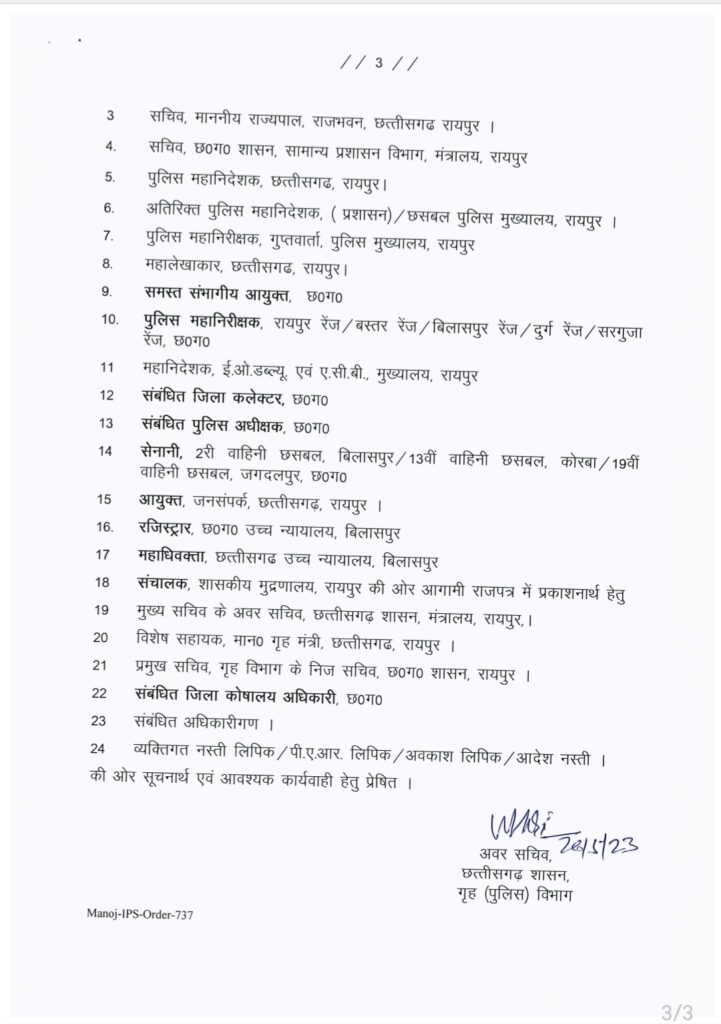 // 3 //
3 सचिव, माननीय राज्यपाल, राजभवन, छत्तीसगढ रायपुर ।
4. सचिव, छ0ग0 शासन, सामान्य प्रशासन विभाग, मंत्रालय, रायपुर
5. पुलिस महानिदेशक, छत्तीसगढ, रायपुर।
6. अतिरिक्त पुलिस महानिदेशक, ( प्रशासन)/छसबल पुलिस मुख्यालय, रायपुर ।
7. पुलिस महानिरीक्षक, गुप्तवार्ता, पुलिस मुख्यालय, रायपुर
8. महालेखाकार, छत्तीसगढ, रायपुर।
9. समस्त संभागीय आयुक्त, छ0ग0
10. पुलिस महानिरीक्षक, रायपुर रेंज/बस्तर रेंज/बिलासपुर रेंज/दुर्ग रेंज/सरगुजा
रेंज, छ0ग0
11 महानिदेशक, ई.ओ.डब्ल्यू. एवं ए.सी.बी., मुख्यालय, रायपुर
12 संबंधित जिला कलेक्टर, छ0ग0
13 संबंधित पुलिस अधीक्षक, छ0ग0
14 सेनानी, 2री वाहिनी छसबल, बिलासपुर/13वीं वाहिनी छसबल, कोरबा/19वीं
वाहिनी छसबल, जगदलपुर, छ0ग0
15 आयुक्त, जनसंपर्क, छत्तीसगढ़, रायपुर ।
16. रजिस्ट्रार, छ0ग0 उच्च न्यायालय, बिलासपुर
17 महाधिवक्ता, छत्तीसगढ उच्च न्यायालय, बिलासपुर
18 संचालक, शासकीय मुद्रणालय, रायपुर की ओर आगामी राजपत्र में प्रकाशनार्थ हेतु
19 मुख्य सचिव के अवर सचिव, छत्तीसगढ़ शासन, मंत्रालय, रायपुर,।
20 विशेष सहायक, मान0 गृह मंत्री, छत्तीसगढ, रायपुर ।
21 प्रमुख सचिव, गृह विभाग के निज सचिव, छ0ग0 शासन, रायपुर ।
22 संबंधित जिला कोषालय अधिकारी, छ0ग0
23 संबंधित अधिकारीगण ।
24 व्यक्तिगत नस्ती लिपिक/पी.ए.आर. लिपिक/अवकाश लिपिक/आदेश नस्ती ।
की ओर सूचनार्थ एवं आवश्यक कार्यवाही हेतु प्रेषित ।
अवर सचिव,
छत्तीसगढ़ शासन,
गृह (पुलिस) विभाग
Manoj-IPS-Order-737
3/3